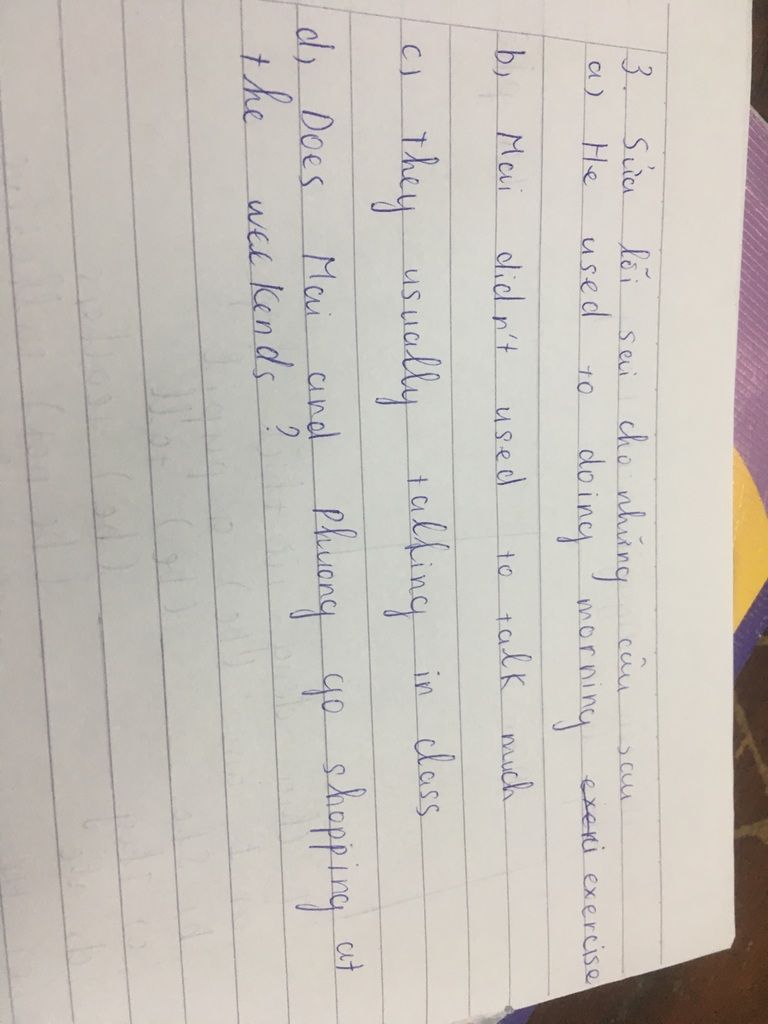 3. Sửa lỗi sai cho những câu sau
a, He used to doing morning exersi exercise
b, Mai didn't used to talk much
c, they usually talking in class
d, Does Mai and Phuong go shopping at
the weekends ?